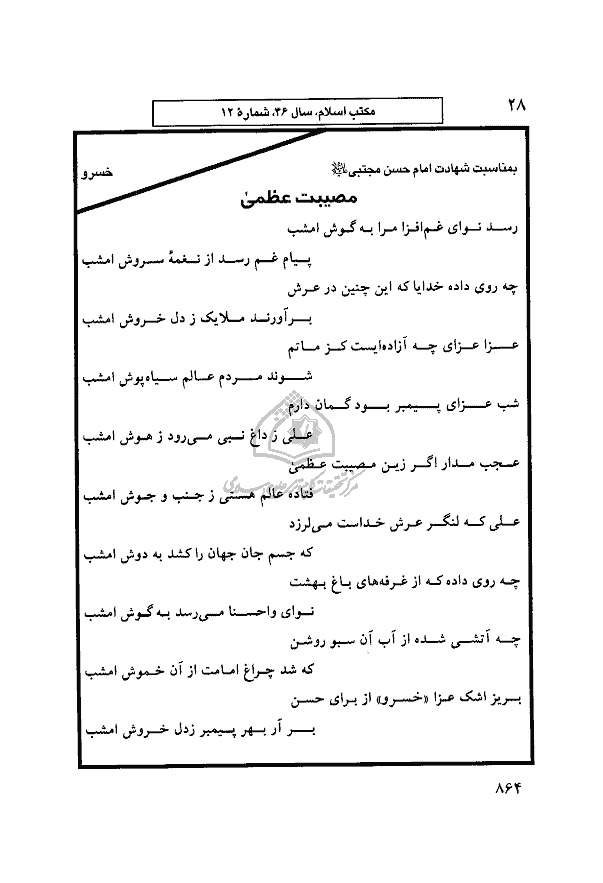 ۲۸
مکتب اسلام، سال ۴۶، شمارهٔ ۱۲
بمناسبت شهادت امام حسن مجتبی
خسرو
مصیبت عظمیٰ
رسد نوای غم‌افزا مرا به گوش امشب
پیام غم رسد از نغمهٔ سروش امشب
چه روی داده خدایا که این چنین در عرش
برآورند ملایک ز دل خروش امشب
عزا عزای چه آزاده‌ایست کز ماتم
شوند مردم عالم سیاه‌پوش امشب
شب عزای پیمبر بود گمان دارم
علی ز داغ نبی می‌رود ز هوش امشب
عجب مدار اگر زین مصیبت عظمیٰ
فتاده عالم هستی ز جنب و جوش امشب
علی که لنگر عرش خداست می‌لرزد
که جسم جان جهان را کشد به دوش امشب
چه روی داده که از غرفه‌های باغ بهشت
نوای واحسنا می‌رسد به گوش امشب
چه آتشی شده از آب آن سبو روشن
که شد چراغ امامت از آن خموش امشب
بریز اشک عزا «خسرو» از برای حسن
بر آر بهر پیمبر زدل خروش امشب
۸۶۴